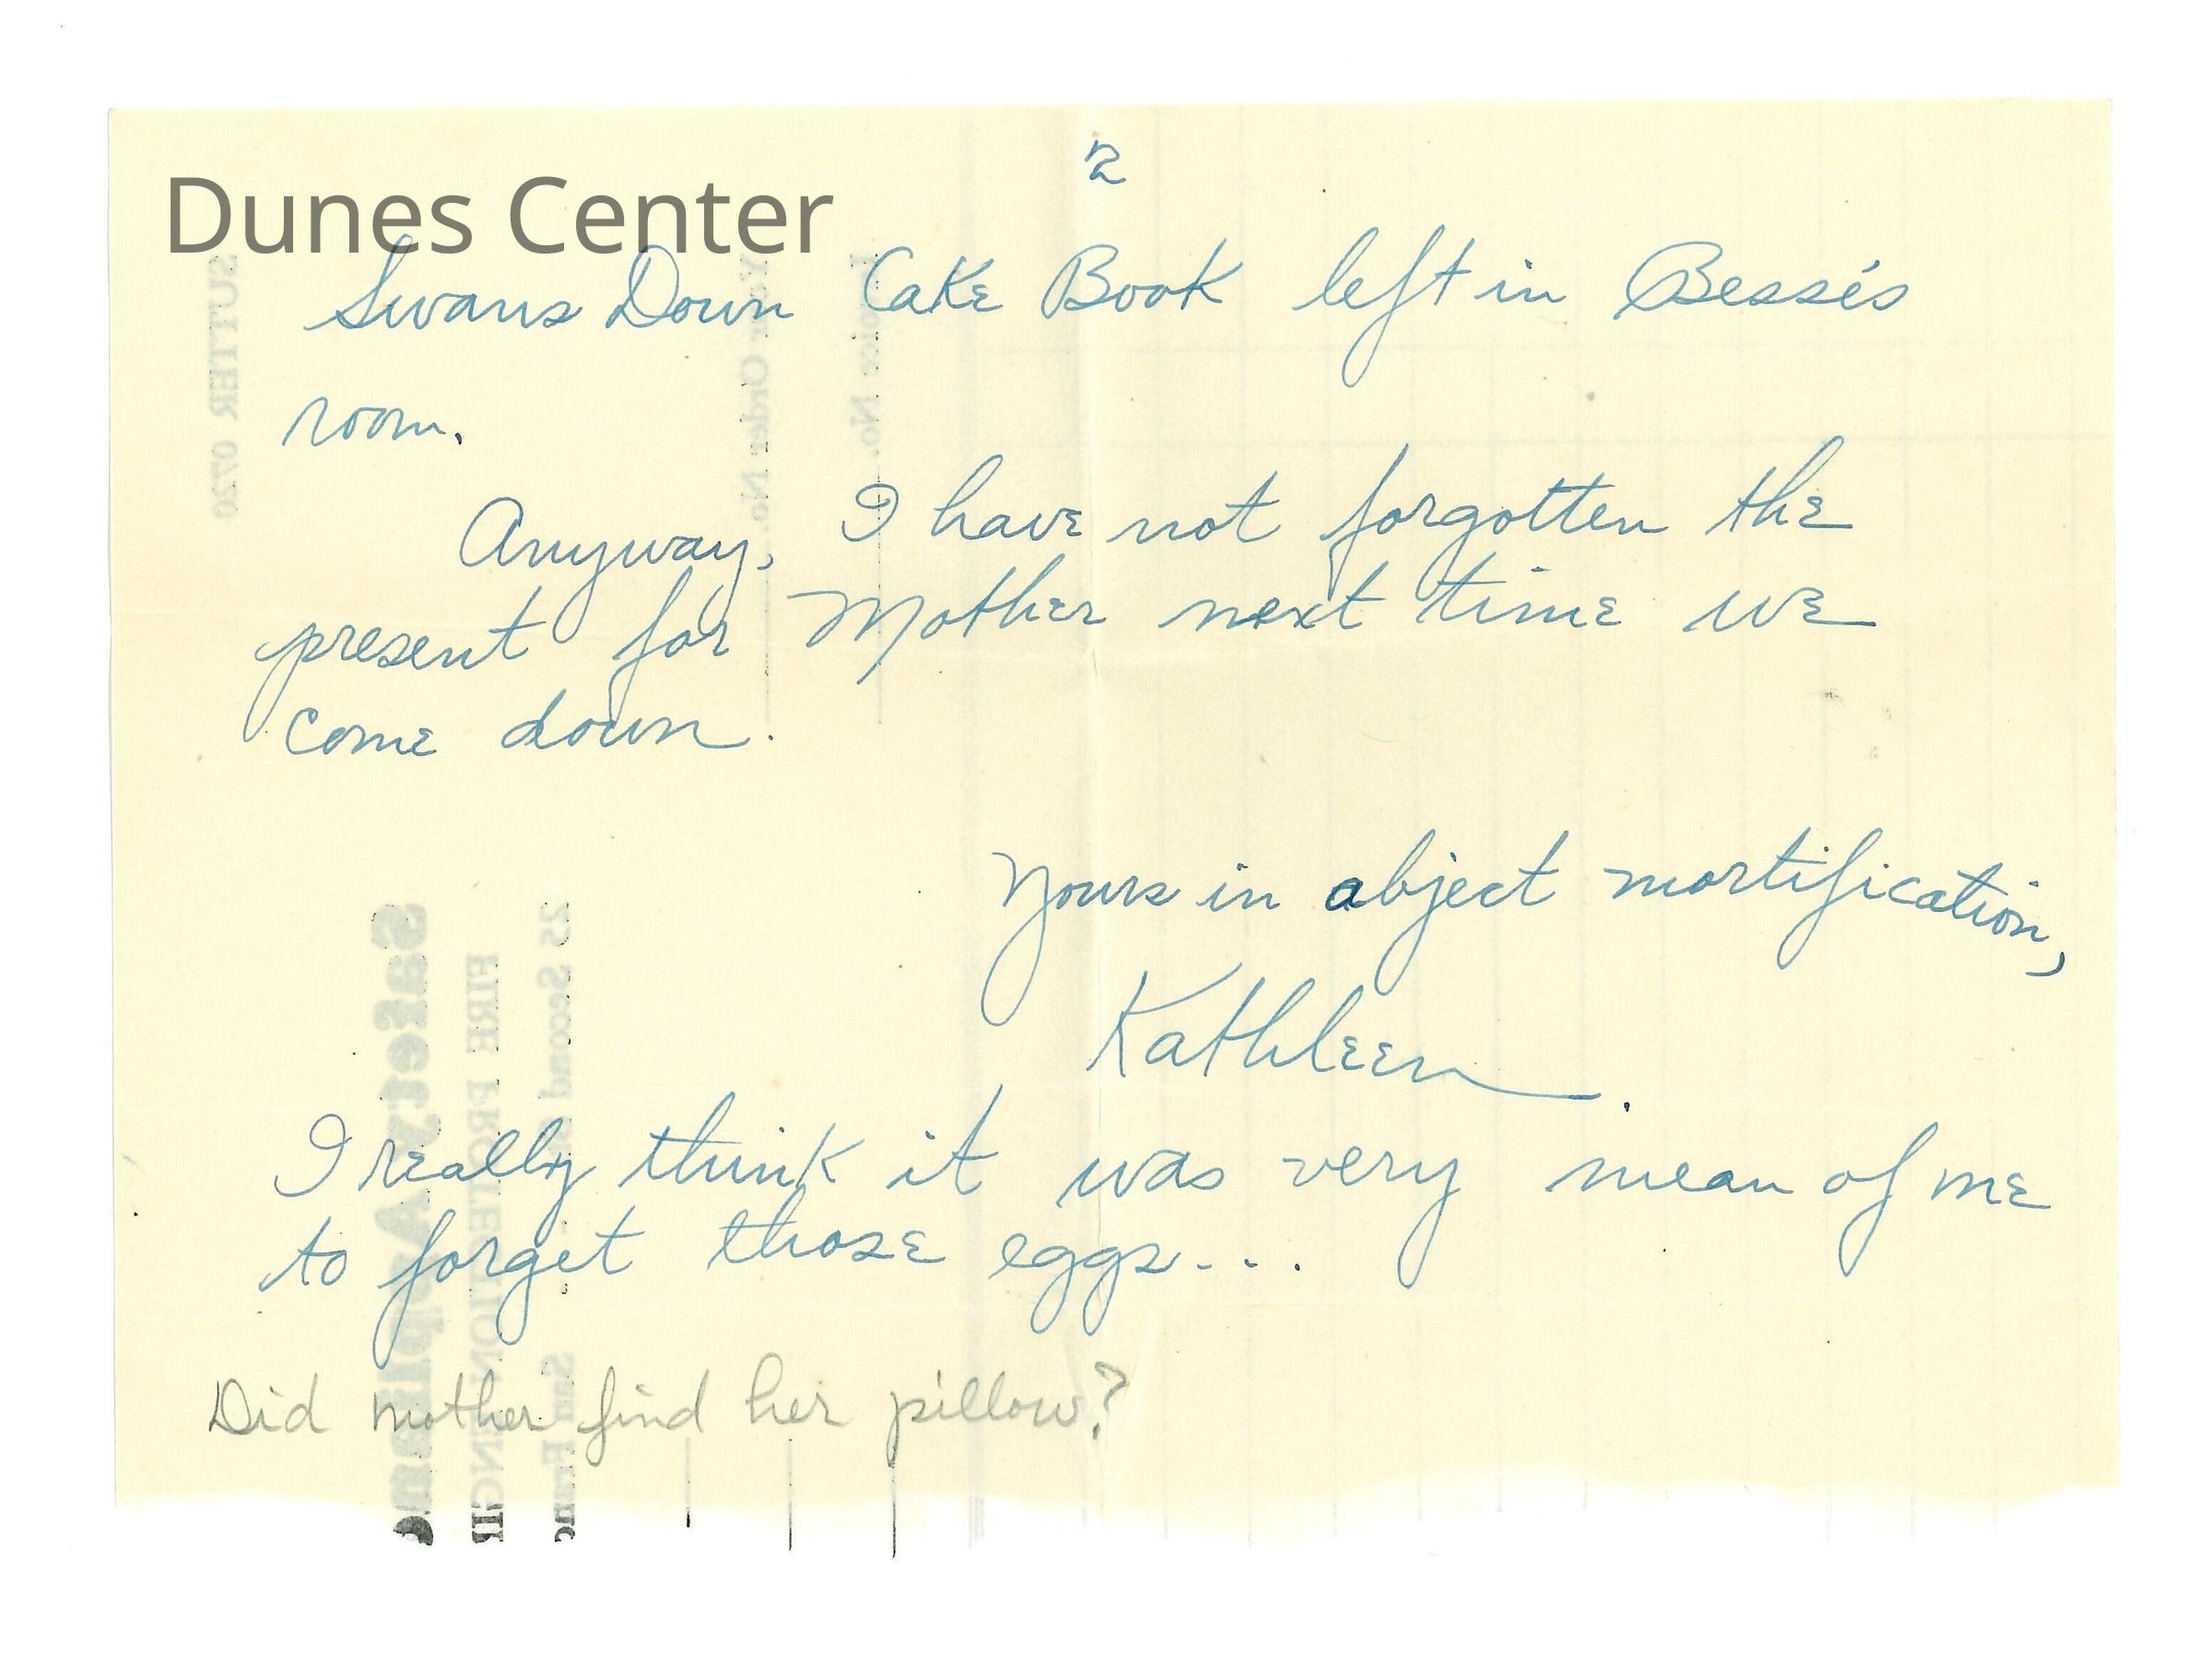 2
Dunes Center
Swans Down Cake Book left in Bess's
room.
Anyway, I have not forgotten the
present for Mother next time we
come down.
Yours in abject mortification,
Kathleen.
I really think it was very mean of me
to forget those eggs...
Did mother find her pillow?
SUTTER 0720
Your Order No.
Invoice No.
Safety Applianc
FIRE PROTECTION ENGI
25 Second
San Franc